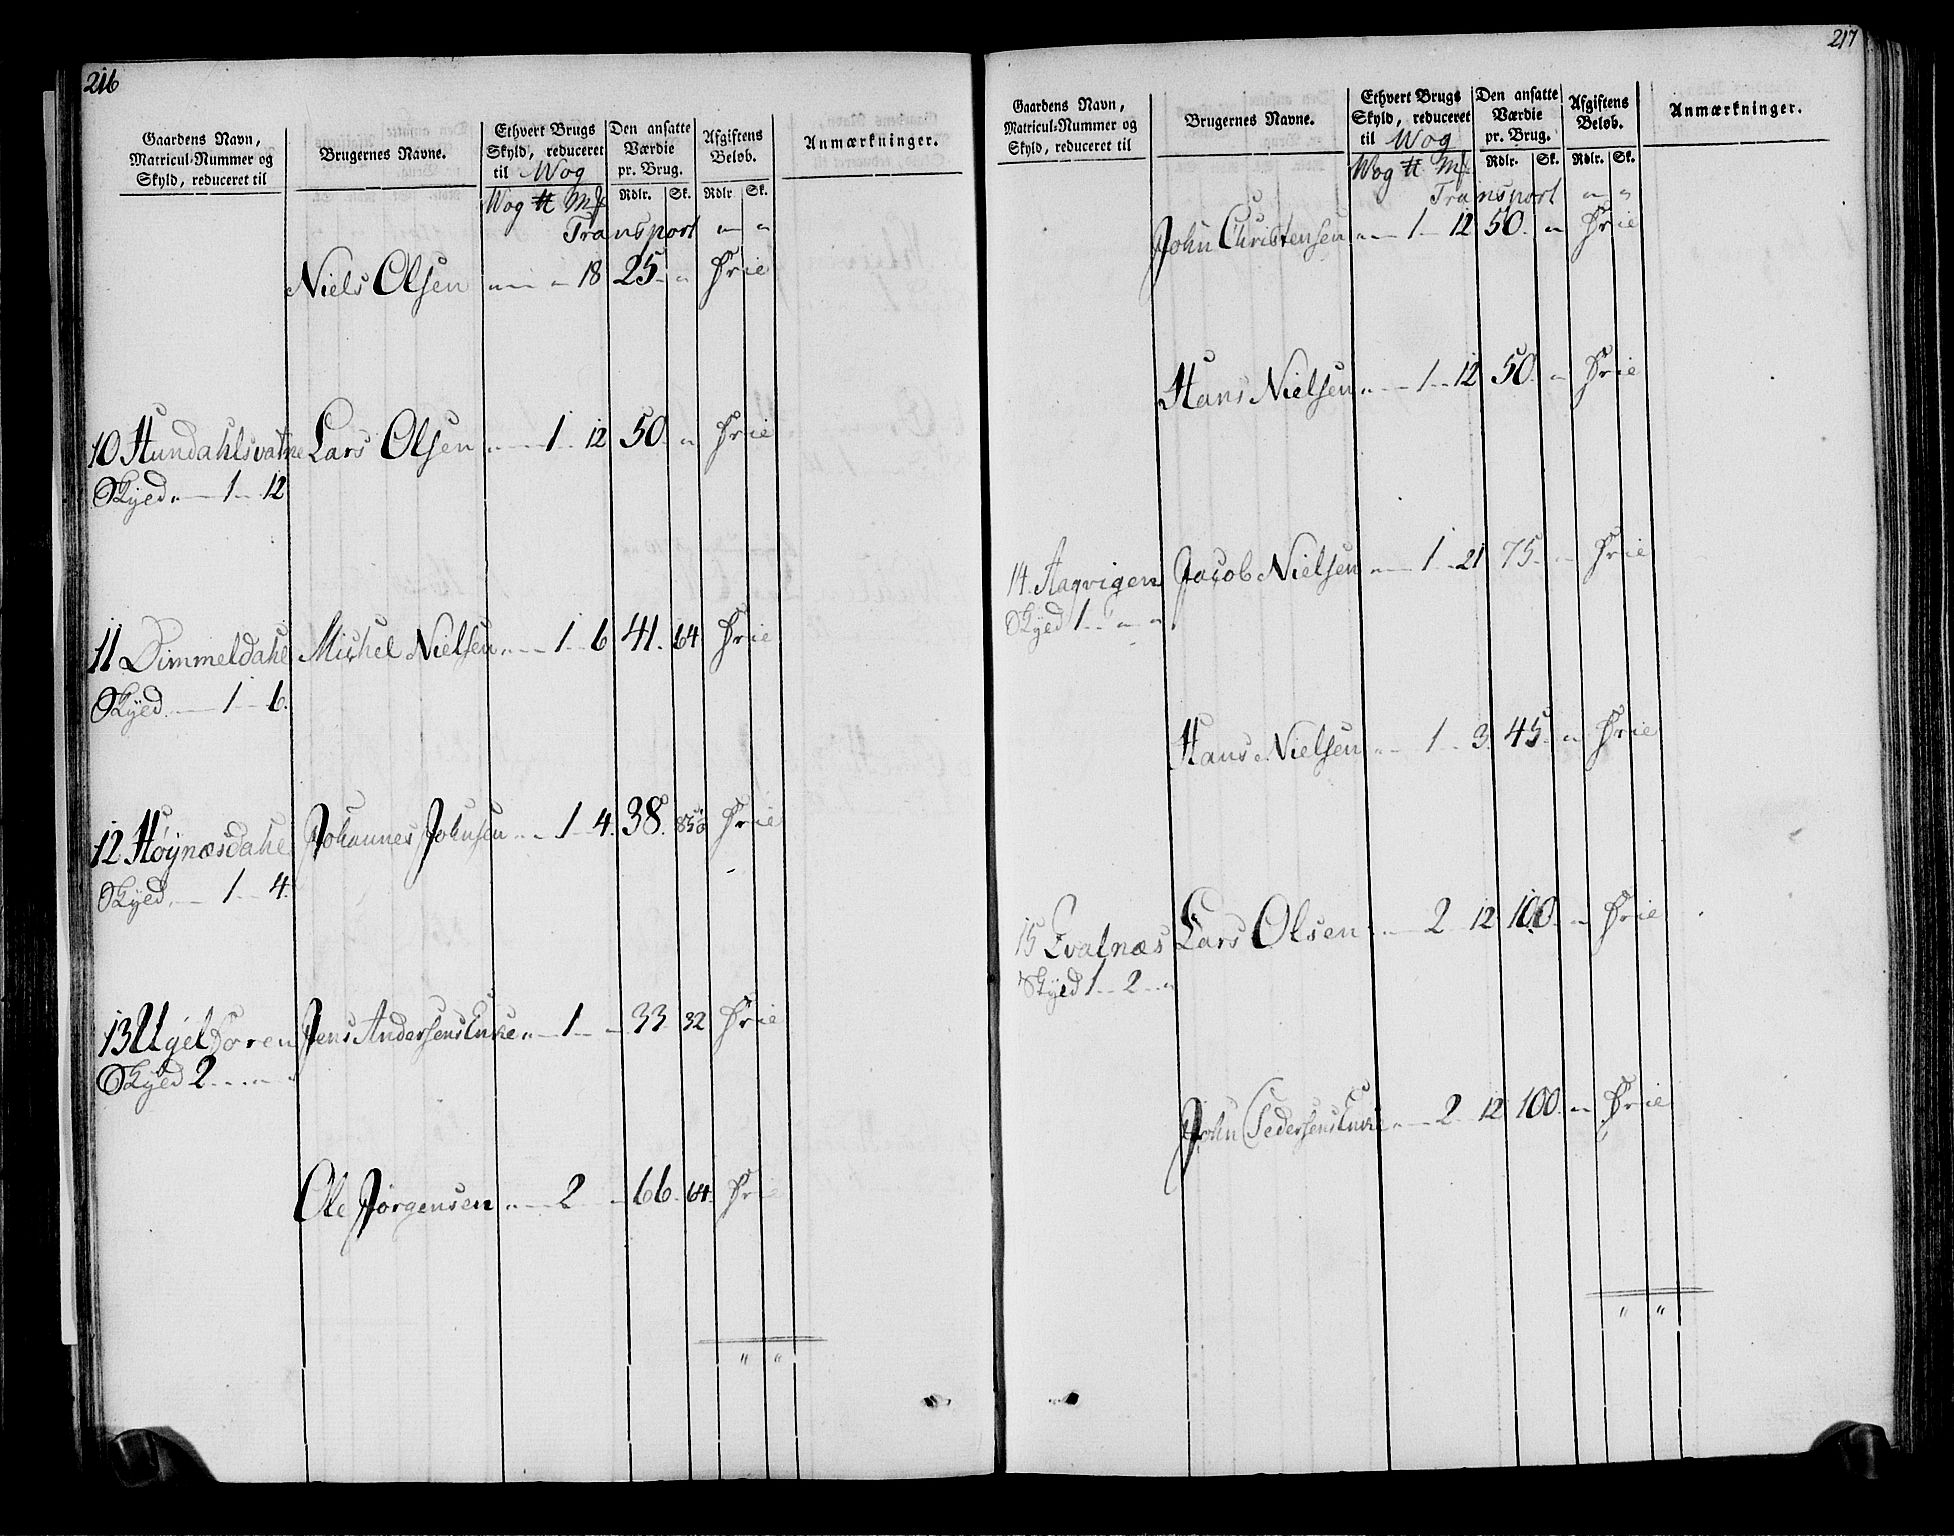 216
Gaardens Navn, Matricul-Nummer og Skyld, reduceret til
Brugernes Navne.
Ethvert Brugs Skyld, reduceret til Wog
Den ansatte Værdie pr. Brug.
Afgiftens Beløb.
Anmærkninger.
Wog ℔ Mk Rdlr. Sk. Rdlr Sk.
Transport " "
Niels Olsen " " 18 25 " Frie
10 Hundahlsvatne Lars Olsen " 1 12 50 " Frie
Skyed " 1 12
11 Dimmeldahl Michel Nielsen " 1 6 41 64 Frie
Skyed 1 6
12 Høynæsdahl Johannes Johnsen " 1 4 38 85 Frie
Skyed 1 4
13 Ugelboren Jens Andersens Enke " 1 33 32 Frie
Skyed 2
Ole Jørgensen " 2 66 64 Frie
" "
217
Gaardens Navn, Matricul-Nummer og Skyld, reduceret til
Brugernes Navne.
Ethvert Brugs Skyld, reduceret til Wog
Den ansatte Værdie pr. Brug.
Afgiftens Beløb.
Anmærkninger.
Wog ℔ Mk Rdlr. Sk. Rdlr. Sk.
Transport " "
John Christensen " 1 12 50 " Frie
Hans Nielsen " 1 12 50 " Frie
14 Aagvigen Jacob Nielsen " 1 21 75 " Frie
Skyed 1 " "
Hans Nielsen " 1 3 45 " Frie
15 Evalnæs Lars Olsen " 2 12 100 " Frie
Skyed 1 2 "
John Pedersens Enke " 2 12 100 " Frie
" "